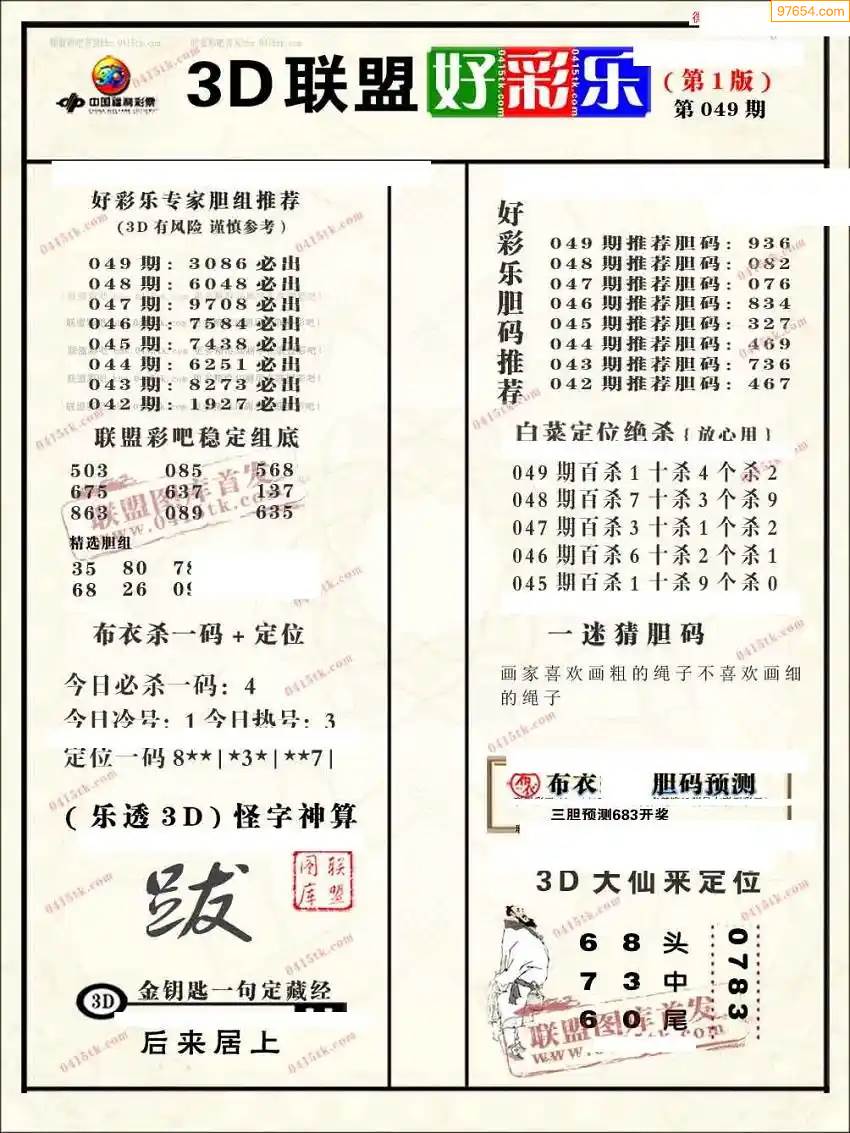 97654.com
3D联盟好彩乐
(第1版)
第049期
中国福利彩票
好彩乐专家胆组推荐
(3D有风险 谨慎参考)
049期: 3086必出
048期: 6048必出
047期: 9708必出
046期: 7584必出
045期: 7438必出
044期: 6251必出
043期: 8273必出
042期: 1927必出
联盟彩吧稳定组底
503 085 568
675 637 137
863 089 635
精选胆组
35 80
68 26
布衣杀一码+定位
今日必杀一码: 4
今日冷号: 1 今日热号: 3
定位一码 8**|*3*|**7|
(乐透3D)怪字神算
跋
联盟图库
3D 金钥匙一句定藏经
后来居上
好彩乐胆码推荐
049期推荐胆码: 936
048期推荐胆码: 082
047期推荐胆码: 076
046期推荐胆码: 834
045期推荐胆码: 327
044期推荐胆码: 469
043期推荐胆码: 736
042期推荐胆码: 467
白菜定位绝杀{放心用}
049期百杀1十杀4个杀2
048期百杀7十杀3个杀9
047期百杀3十杀1个杀2
046期百杀6十杀2个杀1
045期百杀1十杀9个杀0
一迷猜胆码
画家喜欢画粗的绳子不喜欢画细
的绳子
布衣 胆码预测
三胆预测683开奖
3D大仙来定位
6 8 头
7 3 中
6 0 尾
0783
联盟图库首发
www.0415tk.com